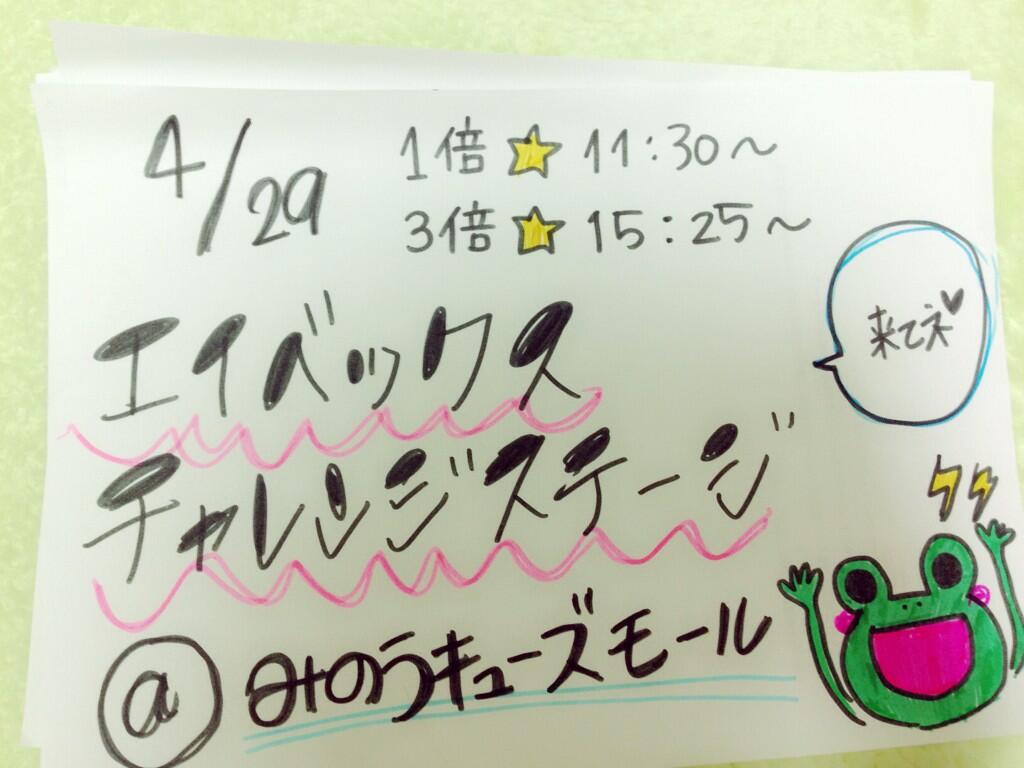 4/29
1倍★11:30〜
3倍★15:25〜
エイベックス
チャレンジステージ
@みのうキューズモール
来てネ♥